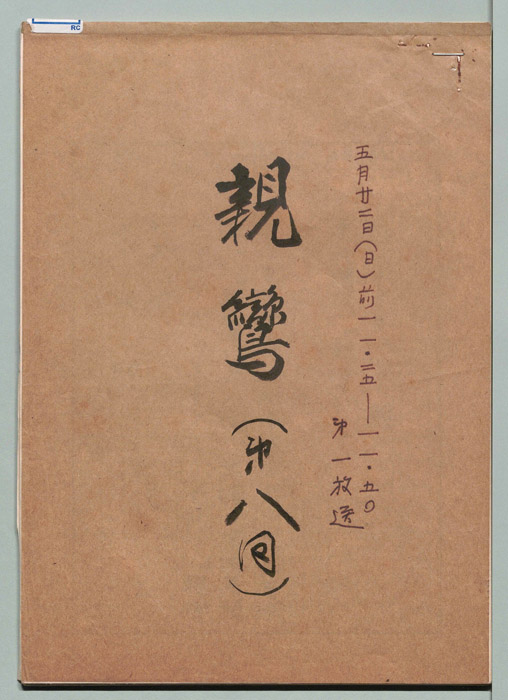 五月廿二日(日)前一一・二五―一一・五〇
㐧一放送
親鸞(㐧八回)
RC